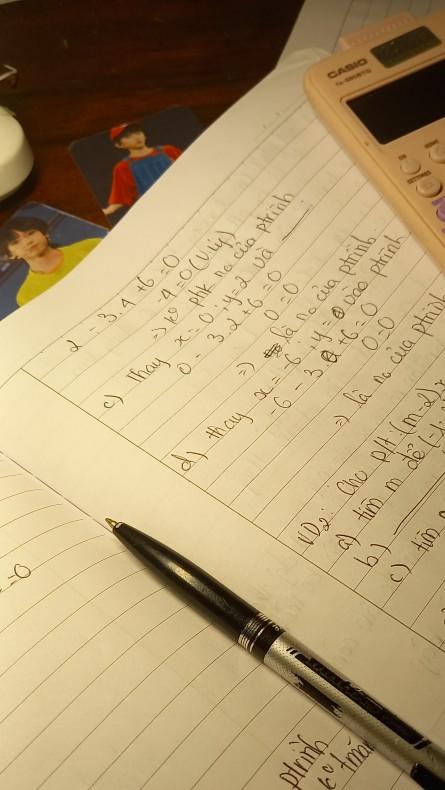 CASIO
fx-880BTG
2 - 3.4 + 6 = 0
-4 = 0 (Vlý)
=> k° phk no của ptrình
c) thay x = 0 ; y = 2 và
0 - 3.2 + 6 = 0
0 = 0
=> là no của ptrình
d) thay x = -6 ; y = 0 vào ptrình
-6 - 3.0 + 6 = 0
0 = 0
=> là no của ptrình
VD2: Cho plt: (m-2)
a) tìm m để (-1;
b)
c) tìm
=0
ptrình
k°